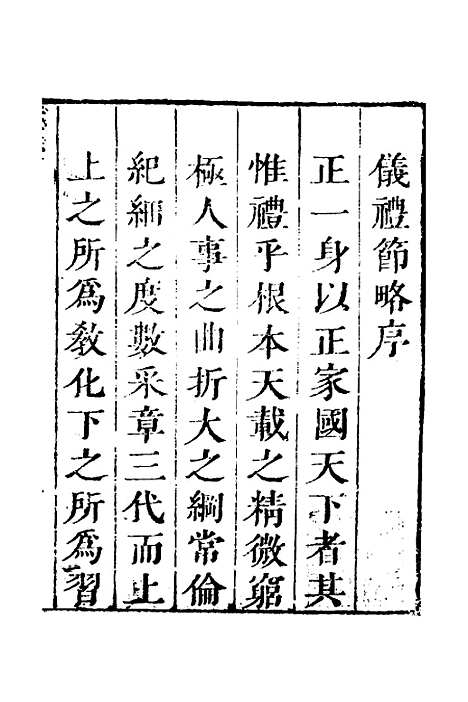 儀禮節略序
正一身以正家國天下者其
惟禮乎根本天載之精微窮
極人事之曲折大之綱常倫
紀細之度數采章三代而上
上之所爲教化下之所爲習